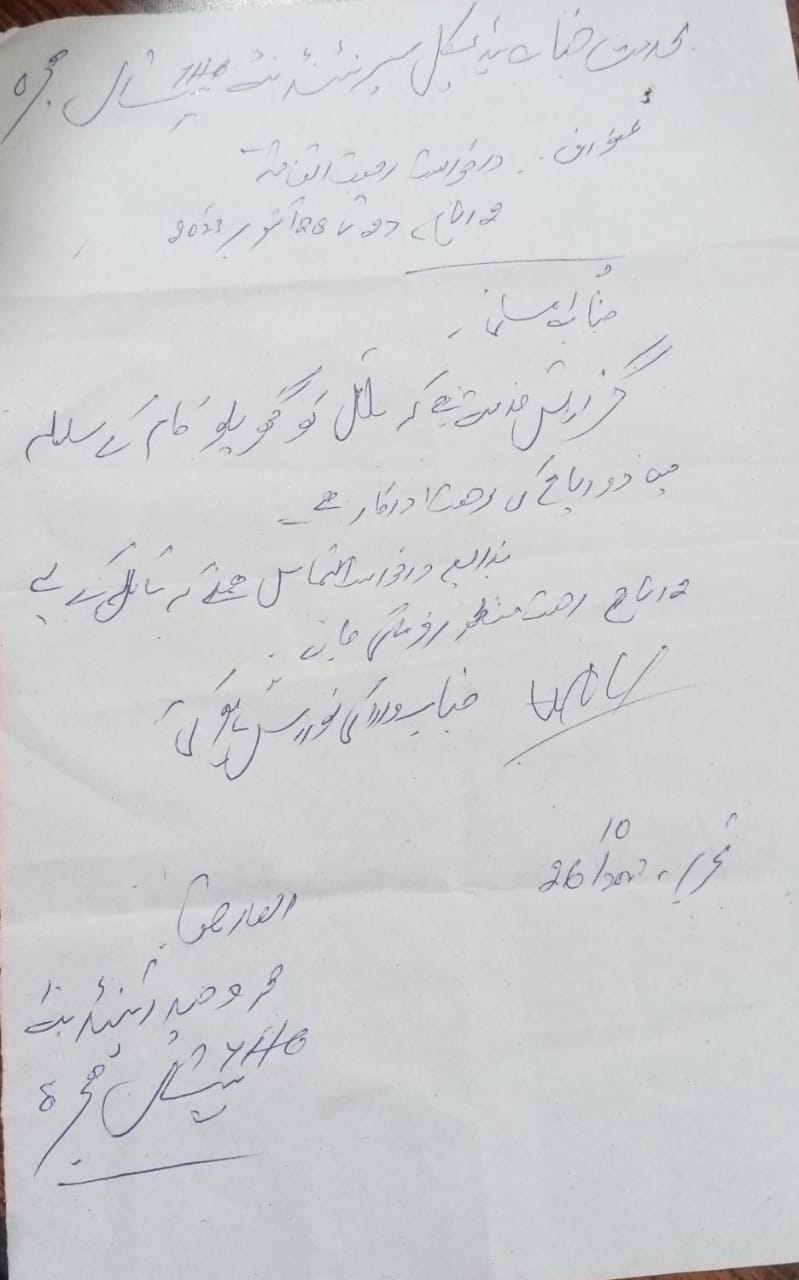 بخدمت جناب میڈیکل سپرنٹنڈنٹ THQ ہسپتال ہجرہ
عنوان: درخواست رخصت اتفاقیہ
2 یوم 27 تا 28 اکتوبر 2023
جناب عالی
گزارش خدمت ہے کہ سائل کو گھریلو کام کے سلسلہ
میں دو یوم کی رخصت درکار ہے
بذریعہ درخواست التماس ہے کہ سائل کے لیے
2 یوم رخصت منظور فرمائی جائے
جناب والا کی نوازش ہو گی
تحریر 26/10/2023
العارض
محمد وحید اٹینڈنٹ
THQ ہسپتال ہجرہ